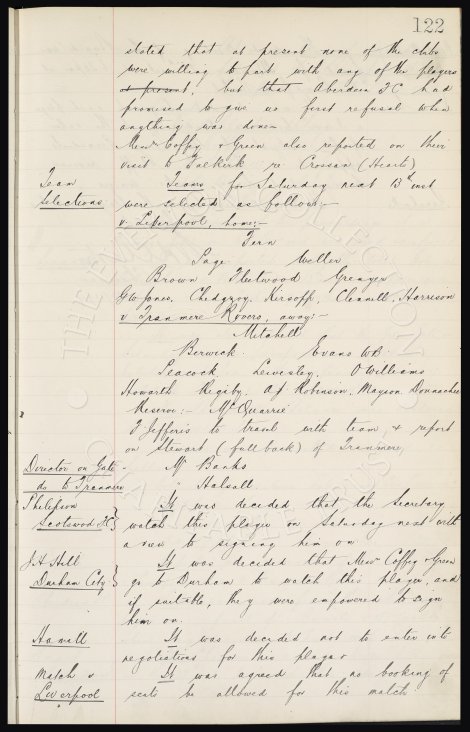 122
stated that at present none of the clubs
were willing to part with any of their players
at present, but that Aberdeen FC had
promised to give us first refusal when
anything was done
Messrs Coffey & Green also reported on their
visit to Falkirk re Crossan (Hearts)
Team
Selections
Teams for Saturday next 13th inst
were selected as follows:-
v. Liverpool, home:-
Fern
Page Weller
Brown Fleetwood Grenyer
G W Jones, Chedgzoy, Kirsopp, Clennell, Harrison
v Tranmere Rovers, away:-
Mitchell
Berwick. Evans W B.
Peacock Lewesley. O Williams
Howarth Rigby. A J Robinson, Mayson Donnachie
Reserve:- McQuarrie
T Jefferis to travel with team & report
on Stewart (full back) of Tranmere
Director on Gate - Mr Banks
do to Tranmere " Halsall
Philipson
Scotswood FC
It was decided that the Secretary
watch this player on Saturday next with
a view to signing him on
J. H. Hill
Durham City
It was decided that Messrs Coffey & Green
go to Durham to watch this player, and
if suitable, they were empowered to sign
him on.
Hamill
It was decided not to enter into
negotiations for this player
Match v
Liverpool
It was agreed that no booking of
seats be allowed for this match
THE EVERTON COLLECTION